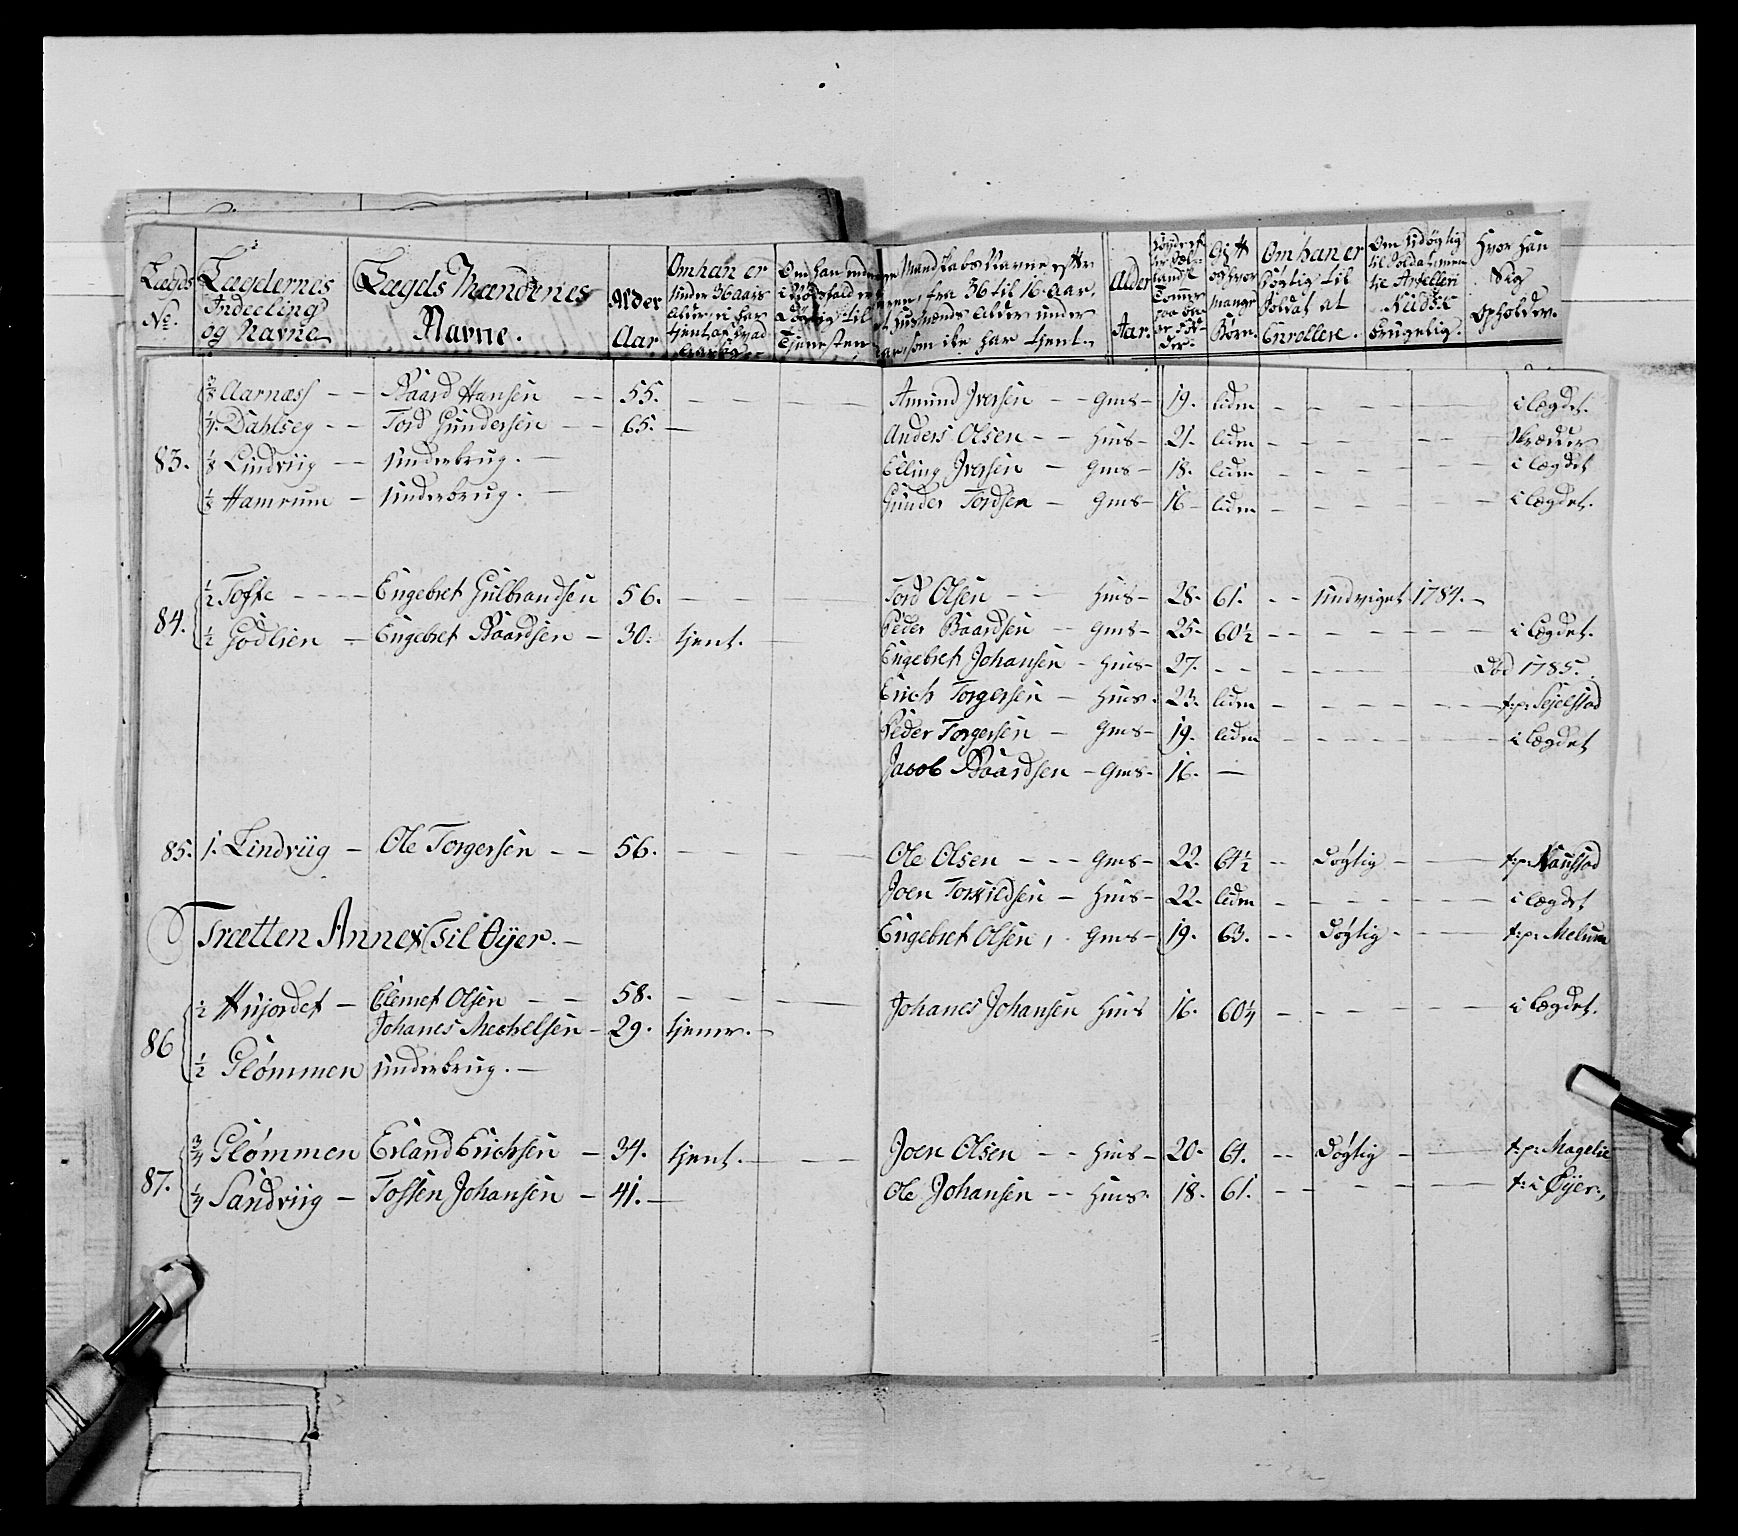 Lægds No. Lægdernes Indeeling og Navne Lægds Mændenes Navne. Alder Aar. Om han er under 36 aars Alder, Om han endnu i Nødsfald er Døgtig til Tjenesten
Mandskabs Navne efter fra 36 til 16 Aar, Alder Aar. Gift og hvor mange Børn. Om han er Døgtig til Soldat at Enrollere. Om Udøgtig til Soldat, men til Artelleri Nüdsk brugelig. Hvor han Sig opholder.
83.
Aarness Baard Hansen 55. Amund Iversen Gms 19. liden i lægdet.
1/4 Dahlseg Tord Gundersen 65. Anders Olsen Huus 21. liden Skrædder
1/8 Lindviig underbrug. Elling Iversen Gms 18. liden i lægdet
1/8 Hamrum underbrug. Gunder Tordsen Gms 16 liden i lægdet.
84.
1/2 Toffte Engebret Gulbrandsen 56. Tord Olsen Huus 28. 61. undviget 1784.
1/2 Godlien Engebret Baardsen 30. tjent. Peder Baardsen Gms 25 60 1/2 i lægdet.
Engebret Johansen Huus 27. Død 1785.
Erich Torgersen Huus 23. liden t:p: Sejelstad
Peder Torgersen Gms 19. liden i lægdet
Jacob Baardsen Gms 16.
85. 1. Lindviig Ole Torgersen 56. Ole Olsen Gms 22. 64 1/2 Døgtig t:p:
Joen Torkildsen Huus 22. liden i lægdet
Trætten Annex Til Øyer. Engebret Olsen, Gms 19. 63. Døgtig t:p: Melum
86
1/2 Hujordet Clemet Olsen 58. Johanes Johansen Huus 16. 60 1/4 i lægdet.
Johanes Mechelsen 29. tjener.
1/2 Glømmen underbrug.
87.
3/4 Glømmen Erland Erichsen 34. tjent. Joen Olsen Huus 20 64. Døgtig t:p: Magelie
1/4 Sandviig Tosten Johansen 41. Ole Johansen Huus 18. 61. t: i Øyer.